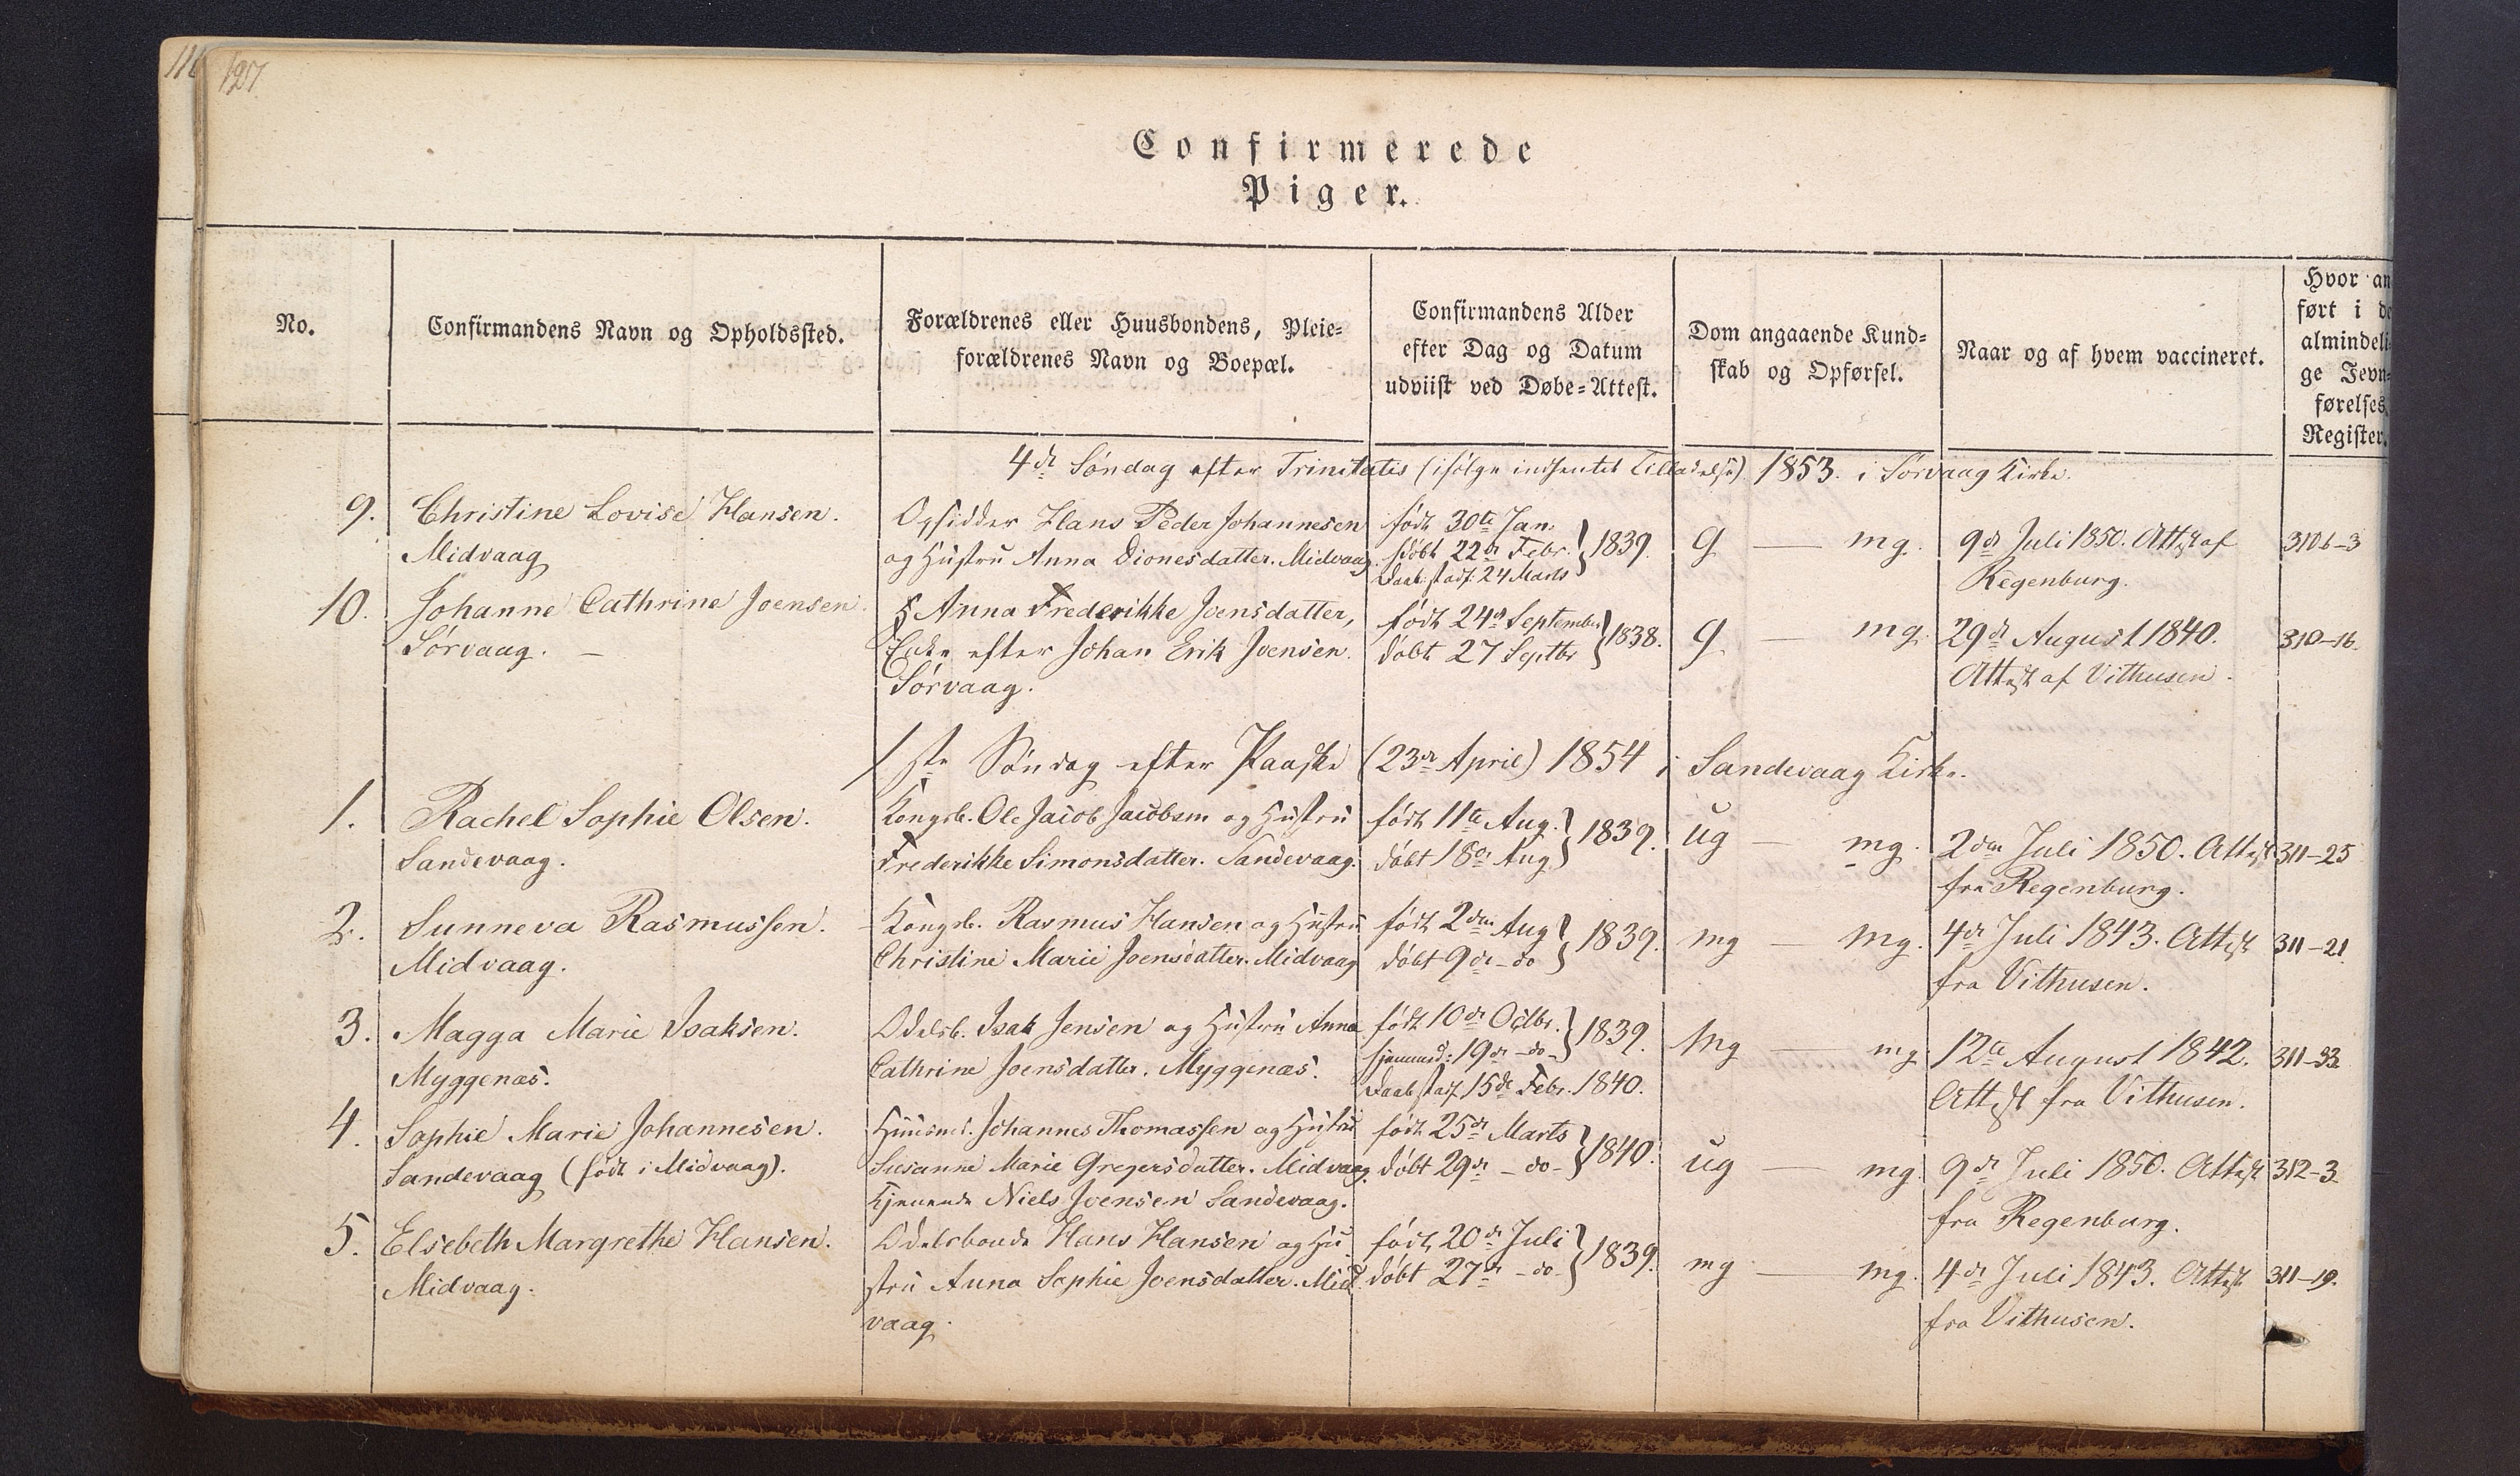 116
127
Confirmerede
Piger.
No.
Confirmandens Navn og Opholdssted.
Forældrenes eller Huusbondens, Pleie-
forældrenes Navn og Boepæl.
Confirmandens Alder
efter Dag og Datum
udviist ved Døbe-Attest.
Dom angaaende Kund-
skab og Opførsel.
Naar og af hvem vaccineret.
Hvor an
ført i de
almindeli-
ge Jevn-
førelses-
Register.
4de Søndag efter Trinitatis (ifølge indhentet Tilladelse) 1853. i Sørvaag Kirke.
9.
Christine Lovise Hansen.
Midvaag
Opsidder Hans Peder Johannesen
og Hustru Anna Dionesdatter. Midvaag.
født 30te Jan:
døbt 22de Febr.
Daab stadf. 24 Marts
1839.
g — mg.
9de Juli 1850. Attest af
Regenburg.
310b-3
10.
Johanne Cathrine Joensen.
Sørvaag. —
Anna Frederikke Joensdatter,
Enke efter Johan Erik Joensen.
Sørvaag.
født 24de September
døbt 27 Septbr
1838.
g. — mg.
29de August 1840.
Attest af Vithusen.
310-16.
1ste Søndag efter Paaske (23de April) 1854 i Sandevaag Kirke.
1.
Rachel Sophie Olsen.
Sandevaag.
Kongsb. Ole Jacob Jacobsen og Hustru
Frederikke Simonsdatter. Sandevaag.
født 11te Aug.
døbt 18de Aug
1839.
ug — mg.
2den Juli 1850. Attest
fra Regenburg.
311-25
2.
Sunneva Rasmussen.
Midvaag.
Kongsb. Rasmus Hansen og Hustru
Christine Marie Joensdatter. Midvaag
født 2den Aug
døbt 9de - do
1839.
mg — mg.
4de Juli 1843. Attest
fra Vithusen.
311-21
3.
Magga Marie Isaksen.
Myggenæs.
Odelsb. Isak Jensen og Hustru Anna
Cathrine Joensdatter. Myggenæs.
født 10de Octbr.
hjemmed: 19de - do -
1839.
Daab stadf 15de Febr. 1840.
mg — mg.
12te August 1842.
Attest fra Vithusen.
311-33
4.
Sophie Marie Johannesen.
Sandevaag (født i Midvaag).
Huusmd. Johannes Thomassen og Hustru
Susanne Marie Gregersdatter. Midvaag.
tjenende Niels Joensen Sandevaag.
født 25de Marts
døbt 29de - do -
1840.
ug — mg.
9de Juli 1850. Attest
fra Regenburg.
312-3
5.
Elsebeth Margrethe Hansen.
Midvaag.
Odelsbonde Hans Hansen og Hu
stru Anna Sophie Joensdatter. Mid
vaag.
født 20de Juli
døbt 27de - do -
1839.
mg — mg.
4de Juli 1843. Attest
fra Vithusen.
311-19.